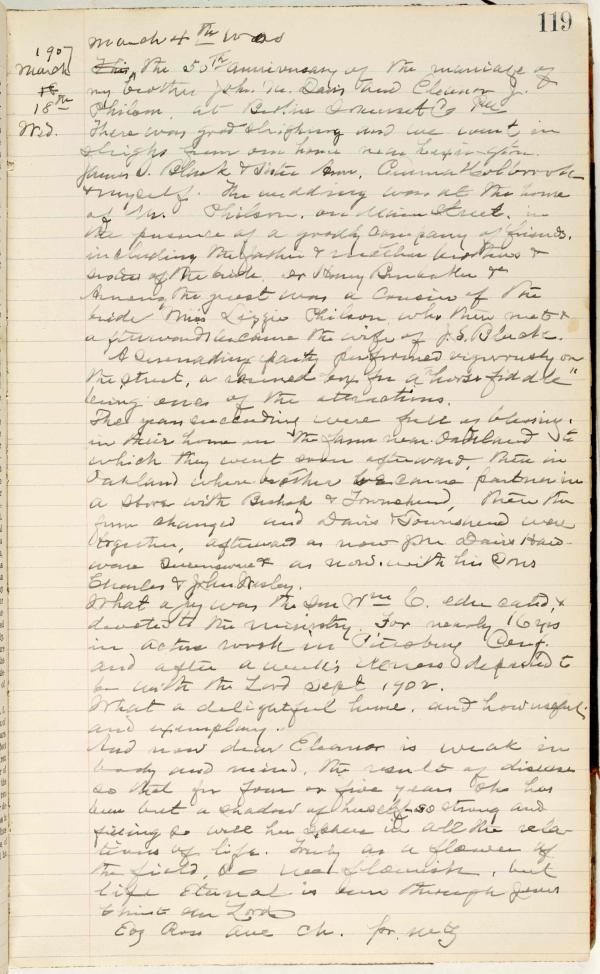 119
March 4th was
1907
March
18th
Wed.
the 50th anniversary of the marriage of
my brother John M. Davis and Eleanor J.
Philson, at Berlin Somerset Co Pa
There was good sleighing and we went in
sleighs from our home near Lexington.
James S. Black & Sister Ann, Emma Holbrook
& myself. The wedding was at the home
of Mr. Philson, on Main Street, in
the presence of a goodly company of friends,
including the father & mother brothers &
sisters of the bride, Dr Henry Brubaker &c
Among the guest was a cousin of the
bride Miss Lizzie Philson, who then met &
afterwards became the wife of J. S. Black.
A serenading party performed vigorously on
the street, a rosined box for a "horse fiddle"
being one of the attractions.
The years succeeding were full of blessing,
in their home on the farm near Oakland to
which they went soon afterward, then in
Oakland where brother became partner in
a store with Bishop & Townshend, then the
firm changed and Davis & Townshend were
together, afterward as now Jno Davis Hard
ware & as now, with his Sons
Charles & John Wesley.
What a joy was the Son Wm E. educated, &
devoted to the ministry. For nearly 16 yrs
in active work in Pittsburg Conf.
and after a week's illness departed to
be with the Lord Sept 1902.
What a delightful home, and how useful
and exemplary.
And now dear Eleanor is weak in
body and mind, the result of disease
so that for four or five years she has
been but a shadow of herself, so strong and
filling so well her sphere in all the rela-
tions of life. Truly as a flower of
the field, so we flourish, but
life eternal is ours through Jesus
Christ our Lord
Evg Ross Ave Ch. pr. mtg